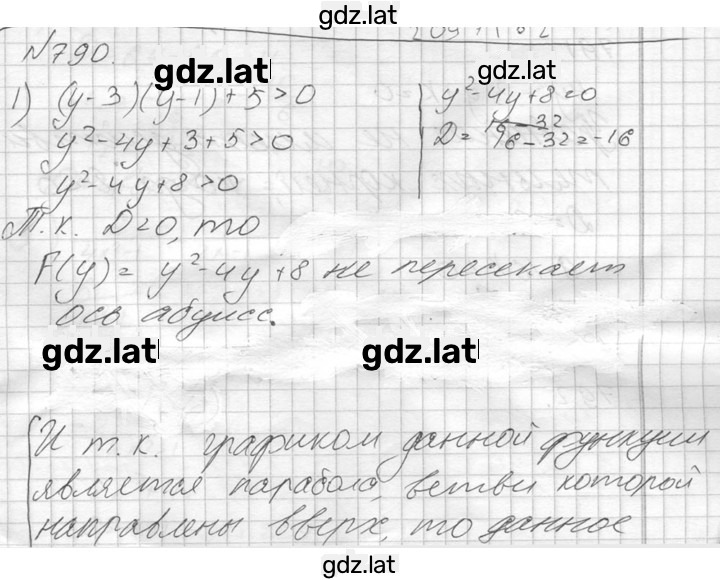 gdz.lat
№790.
gdz.lat
1) (y-3)(y-1)+5>0
y²-4y+3+5>0
y²-4y+8>0
y²-4y+8=0
D= 16-32=-16
Т.к. D<0, то
F(y)= y²-4y+8 не пересекает
ось абцисс.
gdz.lat gdz.lat
И т.к. графиком данной функции
является парабола, ветви которой
направлены вверх, то данное
gdz.lat